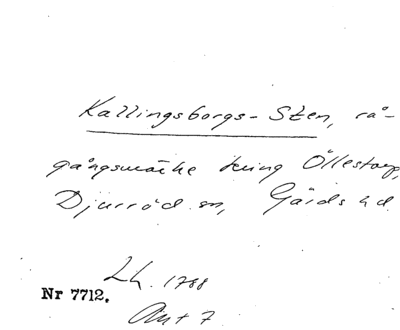 Kallingsborgs-Sten, rå-
gångsmärke kring Öllestorp,
Djurröd sn, Gärds hd.
Lh. 1788
Nr 7712.
Akt 7